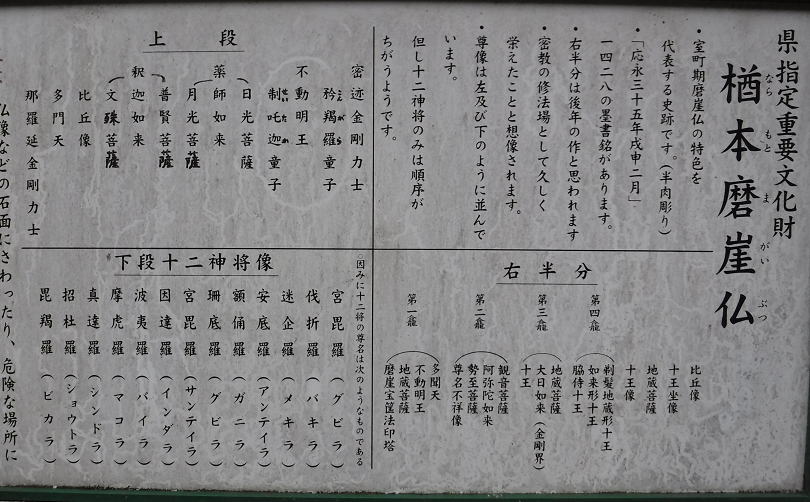 県指定重要文化財
楢本磨崖仏
なら もと ま がい ぶつ
・室町期磨崖仏の特色を
代表する史跡です。(半肉彫り)
・「応永三十五年戌申二月」
一四二八の墨書銘があります。
・右半分は後年の作と思われます
・密教の修法場として久しく
栄えたことと想像されます。
・尊像は左及び下のように並んで
います。
但し十二神将のみは順序が
ちがうようです。
上段
密迹金剛力士
矜羯羅童子
こんがら
制吒迦童子
せいたか
不動明王
日光菩薩
薬師如来
月光菩薩
普賢菩薩
釈迦如来
文殊菩薩
比丘像
多門天
那羅延金剛力士
右半分
比丘像
十王坐像
地蔵菩薩
十王像
第四龕
剃髪地蔵形十王
如来形十王
脇侍十王
第三龕
地蔵菩薩
大日如来(金剛界)
十王
第二龕
観音菩薩
阿弥陀如来
勢至菩薩
尊名不祥像
第一龕
多聞天
不動明王
地蔵菩薩
磨崖宝筺法印塔
下段十二神将像
○因みに十二将の尊名は次のようなものである
宮毘羅(グビラ)
伐折羅(バキラ)
迷企羅(メキラ)
安底羅(アンテイラ)
額俑羅(ガニラ)
珊底羅(グビラ)
宮毘羅(サンテイラ)
因達羅(インダラ)
波夷羅(バイラ)
摩虎羅(マコラ)
真達羅(シンドラ)
招杜羅(ショウトラ)
毘羯羅(ビカラ)
仏像などの石面にさわったり、危険な場所に